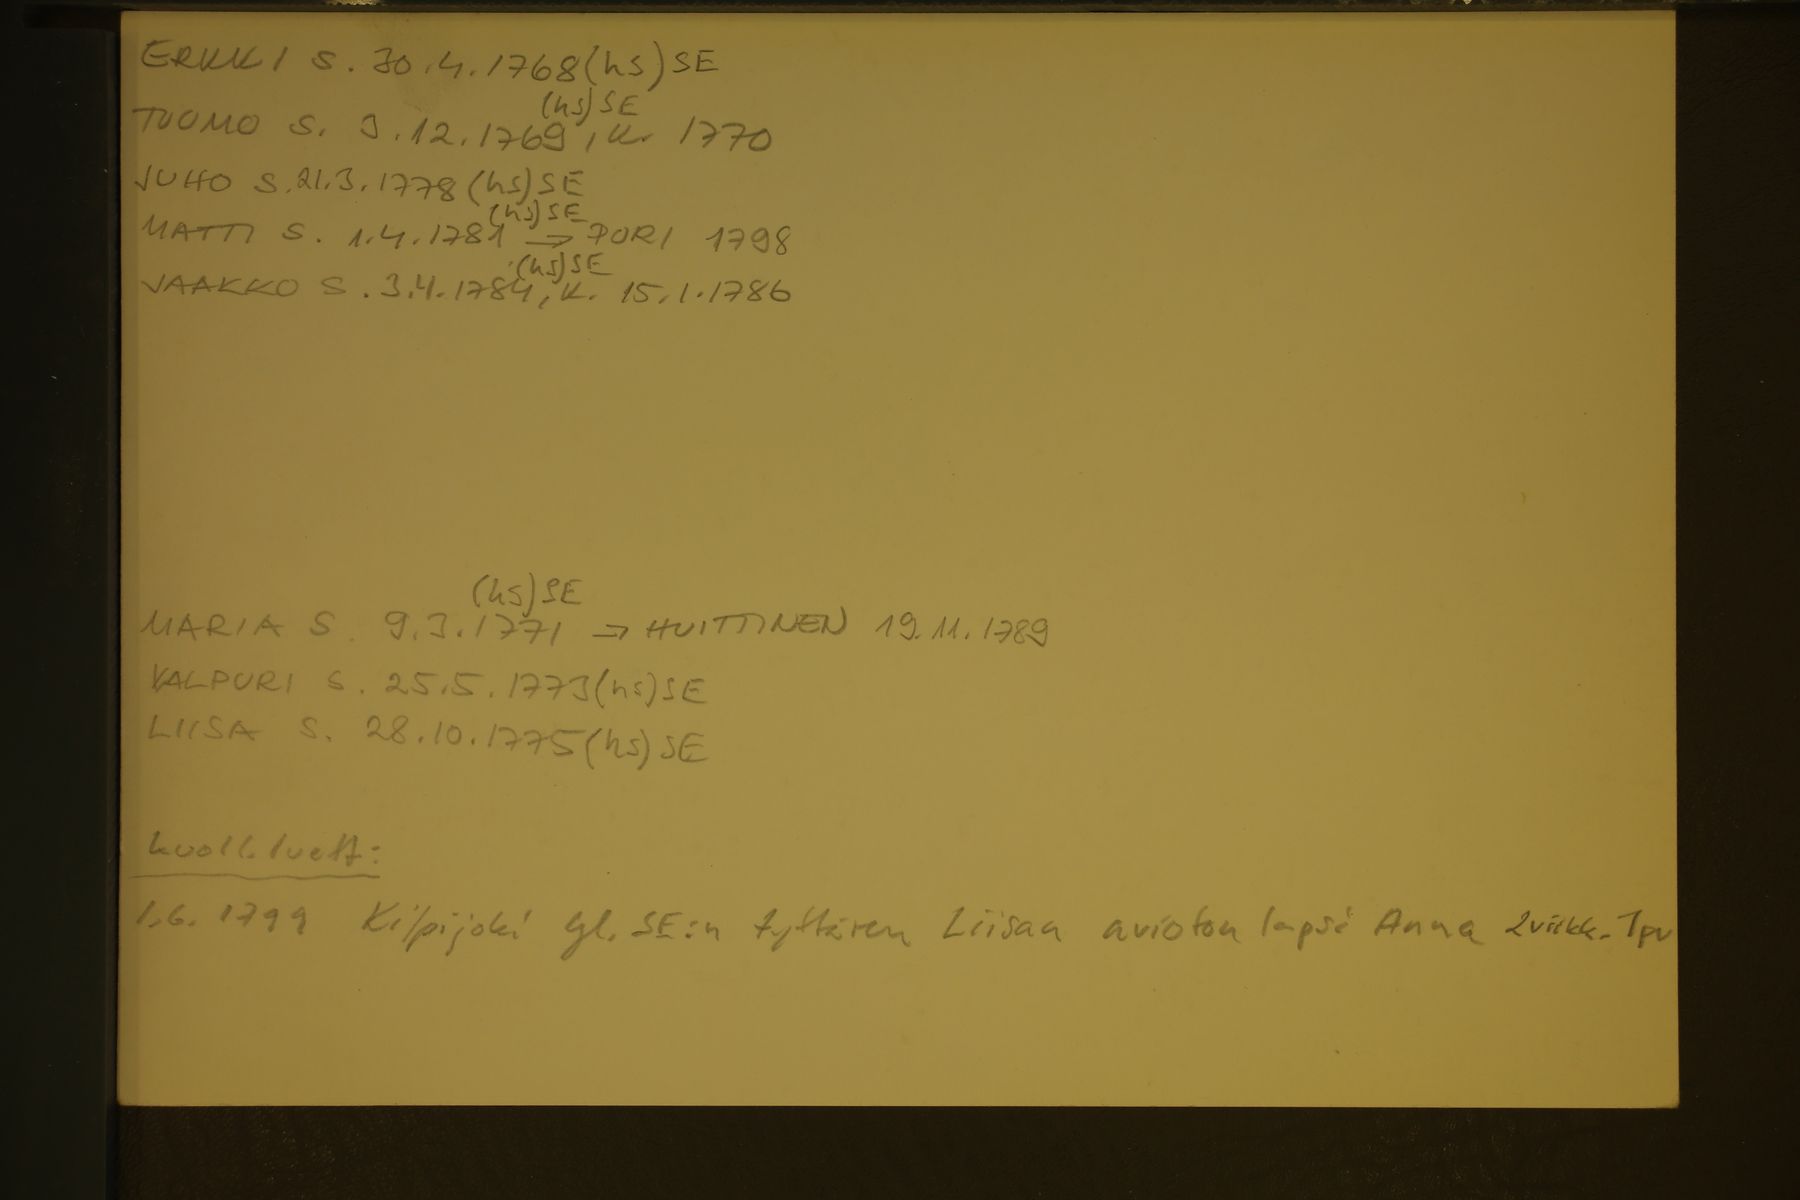 ERKKI S. 30.4.1768 (hs) SE
TUOMO S. 3.12.1769 (hs) SE, K. 1770
JUHO S. 21.3.1778 (hs) SE
MATTI S. 1.4.1781 (hs) SE → PORI 1798
JAAKKO S. 3.4.1784 (hs) SE, K. 15.1.1786
MARIA S. 9.3.1771 (hs) SE → HUITTINEN 19.11.1789
VALPURI S. 25.5.1773 (hs) SE
LIISA S. 28.10.1775 (hs) SE
kuoll. luett:
1.6. 1799 Kilpijoki gl. SE:n tyttären Liisan avioton lapsi Anna 2 viikk. 1 pv